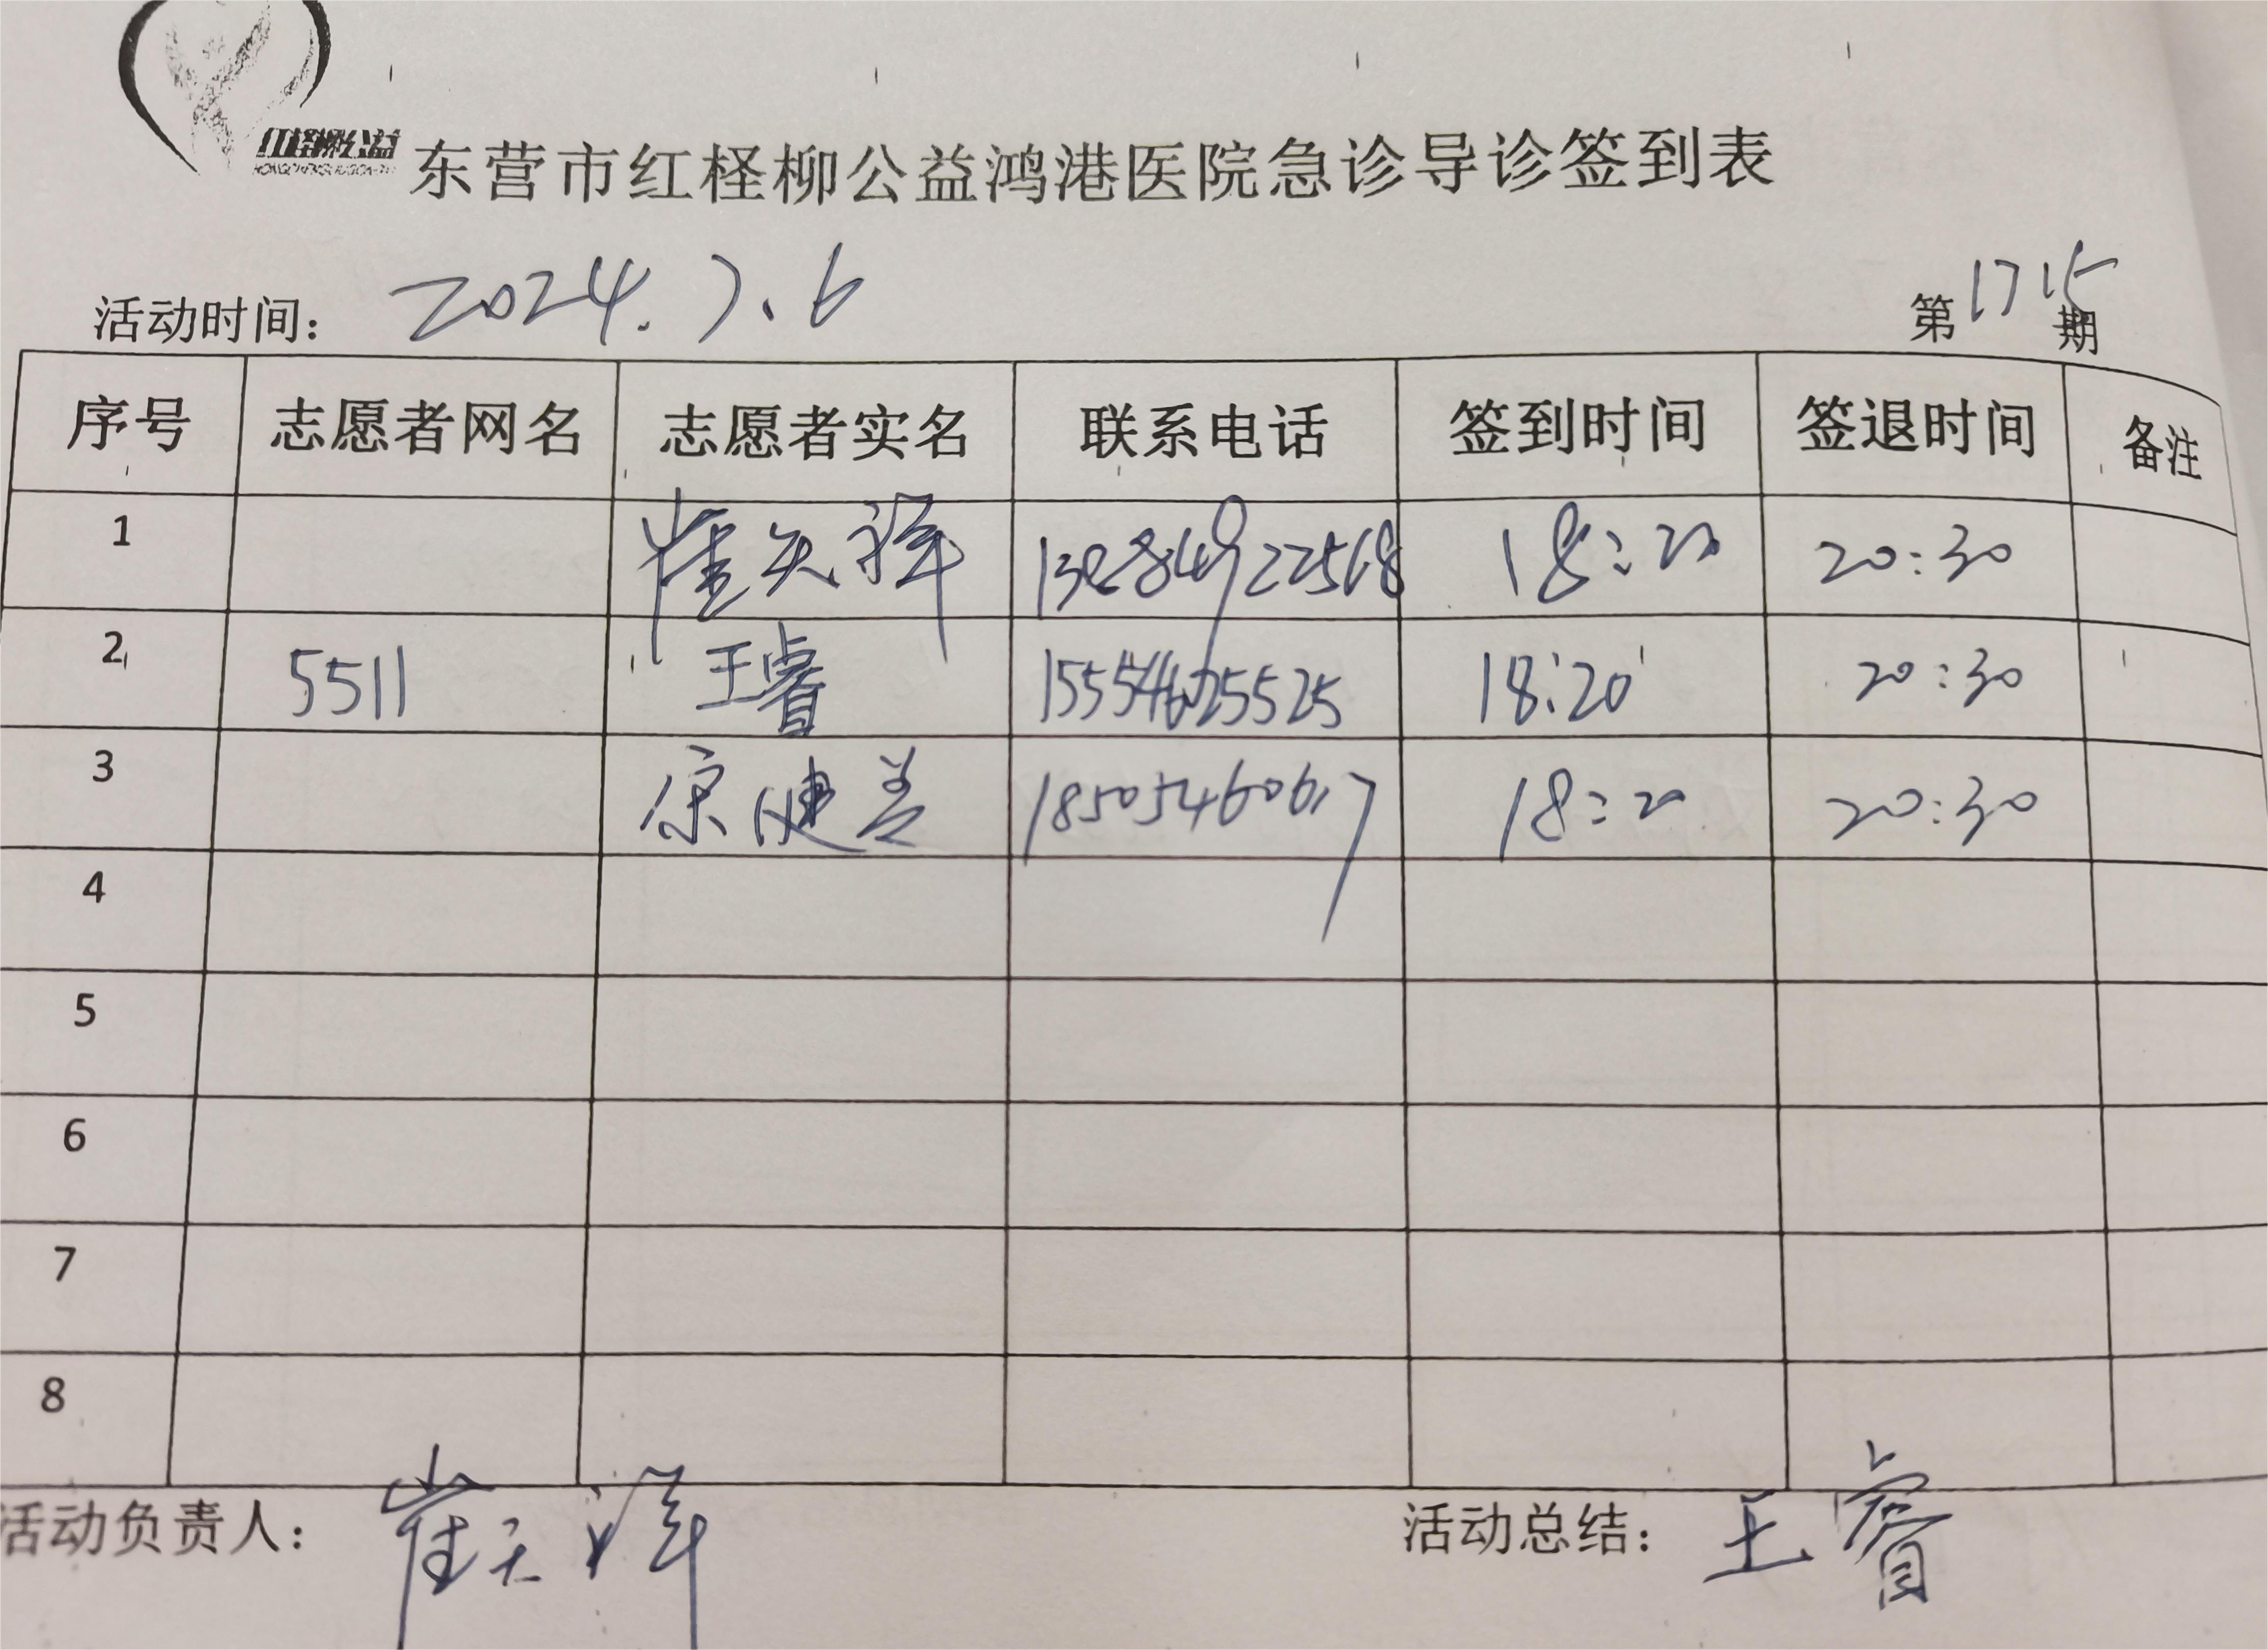 红柽柳公益
东营市红柽柳公益鸿港医院急诊导诊签到表
活动时间： 2024.7.6 第1715期
序号 志愿者网名 志愿者实名 联系电话 签到时间 签退时间 备注
1 崔天祥 18:20 20:30
2 5511 王睿 15554625525 18:20 20:30
3 18505460617 18:20 20:30
4
5
6
7
8
活动负责人： 崔天祥 活动总结： 王睿